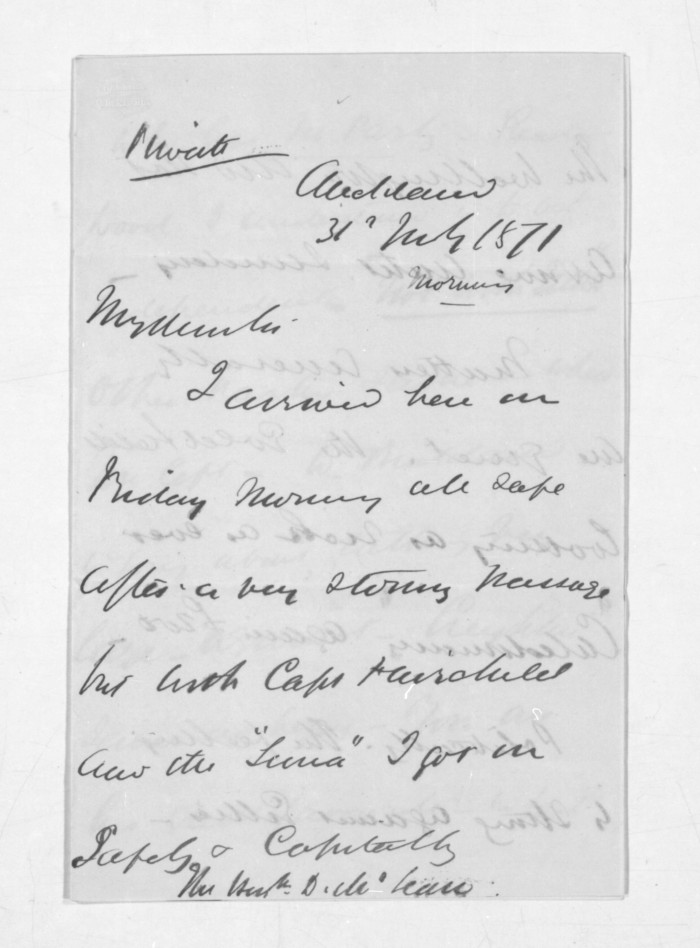 Private
Auckland
31st July 1871
Morning
My dear Sir
I arrived here on
Friday Morning all safe
after a very stormy Passage
but with Capt Fairchild
and the "Luna" I got in
Safely & Capitally
The Honble D. McLean